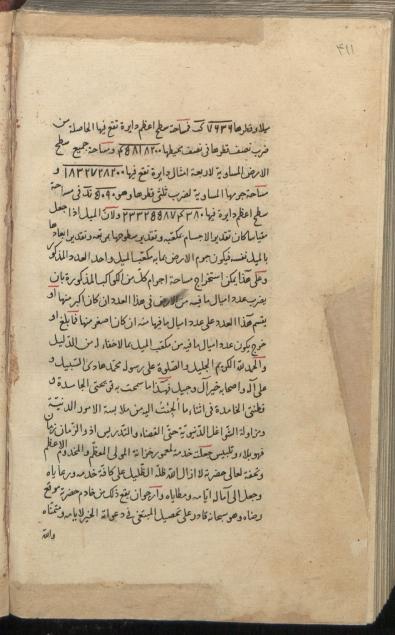 ٤١١
ميلا وقطرها ٧٦٣٦ ك فساحة سطح اعظم دايرة تقع فيها الحاصلة من
ضرب نصف قطرها فى نصف محيطها ومساحة جميع سطح
الارض المساوية لاربعة امثال دايرة تقع فيها و
مساحة جرمها المساوية لضرب ثلثى قطرها وهو فى مساحة
سطح اعظم دايرة فيها ولان الميل اذا جعل
مقياسا كان تقدير الاجسام بمكعبه وتقدير سطوحها بمربعه وتقدير ابعادها
بالميل نفسه فيكون جرم الارض بما به مكعب الميل واحد العدد المذكور
وعلى هذا يمكن استخراج مساحة اجرام كل من الكواكب المذكورة بان
يضرب عدد اميال ما فيه من الارض فى هذا العدد ان كان اكبر منها او
يقسم هذا العدد على عدد اميال ما فيها منه ان كان اصغر منها فما بلغ او
خرج يكون عدد اميال ما فيه من مكعب الميل
والحمد لله الكريم الجليل والصلوة على رسوله محمد هادى السبيل و
على آله واصحابه خير آل وجيل فهذا ما سمحت به قريحتى الجامدة و
فطنتى الخامدة فى اثناء ما الجئت اليه من ملابسة الامور الدنية
ومزاولة الشواغل الدنيوية حتى القضاء والتدريس اذ والزمان زمان
فهو بلاء وتلبيس جعلته خدمة لمعمور خزانة المولى المعظم والمخدوم الاعظم
وتحفة لعالى حضرته لا ازال الله ظله الظليل على كافة خدمه ورعاياه
وجعل الى آماله ايامه ومطاياه وارجو ان يقع ذلك من خادم حضرته موقع
رضاه وهو سبحانه قادر على تحصيل المبتغى فى دعواته الخير لايامه ومتمناه
والله